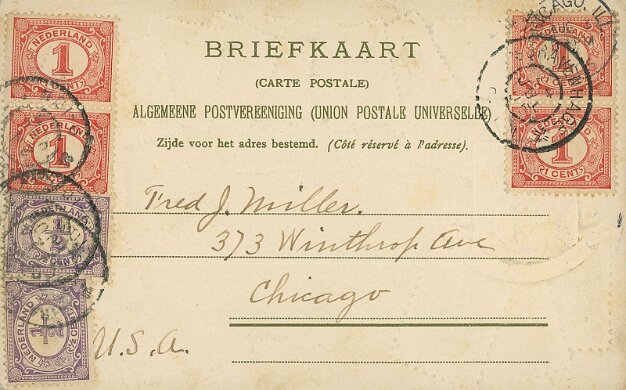 NEDERLAND
1
CENT
NEDERLAND
1
NEDERLAND
1/2
CENT
NEDERLAND
1/2
½ CENT
BRIEFKAART
(CARTE POSTALE)
ALGEMEENE POSTVEREENIGING (UNION POSTALE UNIVERSELLE)
Zijde voor het adres bestemd. (Côté réservé à l'adresse).
CHICAGO, ILL
'S GRAVENHAGE
1
1 CENT
Fred J. Miller.
373 Winthrop Ave
Chicago
U.S.A.